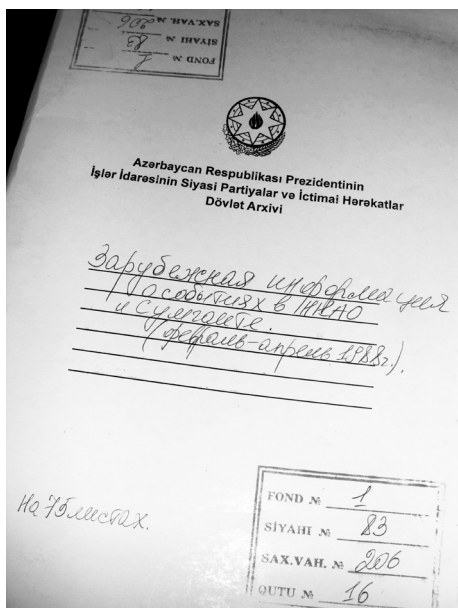 FOND № 1
SİYAHI № 83
SAX.VAH. № 206
Azərbaycan Respublikası Prezidentinin
İşlər İdarəsinin Siyasi Partiyalar və İctimai Hərəkatlar
Dövlət Arxivi
Зарубежная информация
о событиях в НКАО
и Сумгаите.
(февраль-апрель 1988г.).
На 75 листах.
FOND № 1
SİYAHI № 83
SAX.VAH. № 206
QUTU № 16